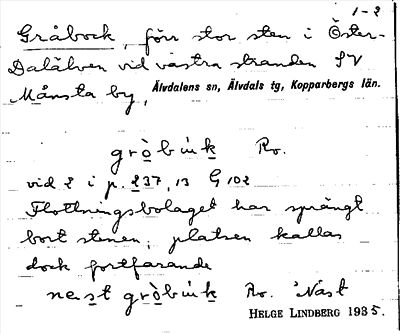 1-2
Gråbock, förr stor sten i Öster-
Dalälven vid västra stranden SV
Månsta by, Älvdalens sn, Älvdals tg, Kopparbergs län.
gròbuk Ro.
vid 2 i p. 237, 13 G 102
Flottningsbolaget har sprängt
bort stenen; platsen kallas
dock fortfarande
gròbuk Ro. 'Näst
HELGE LINDBERG 1935.